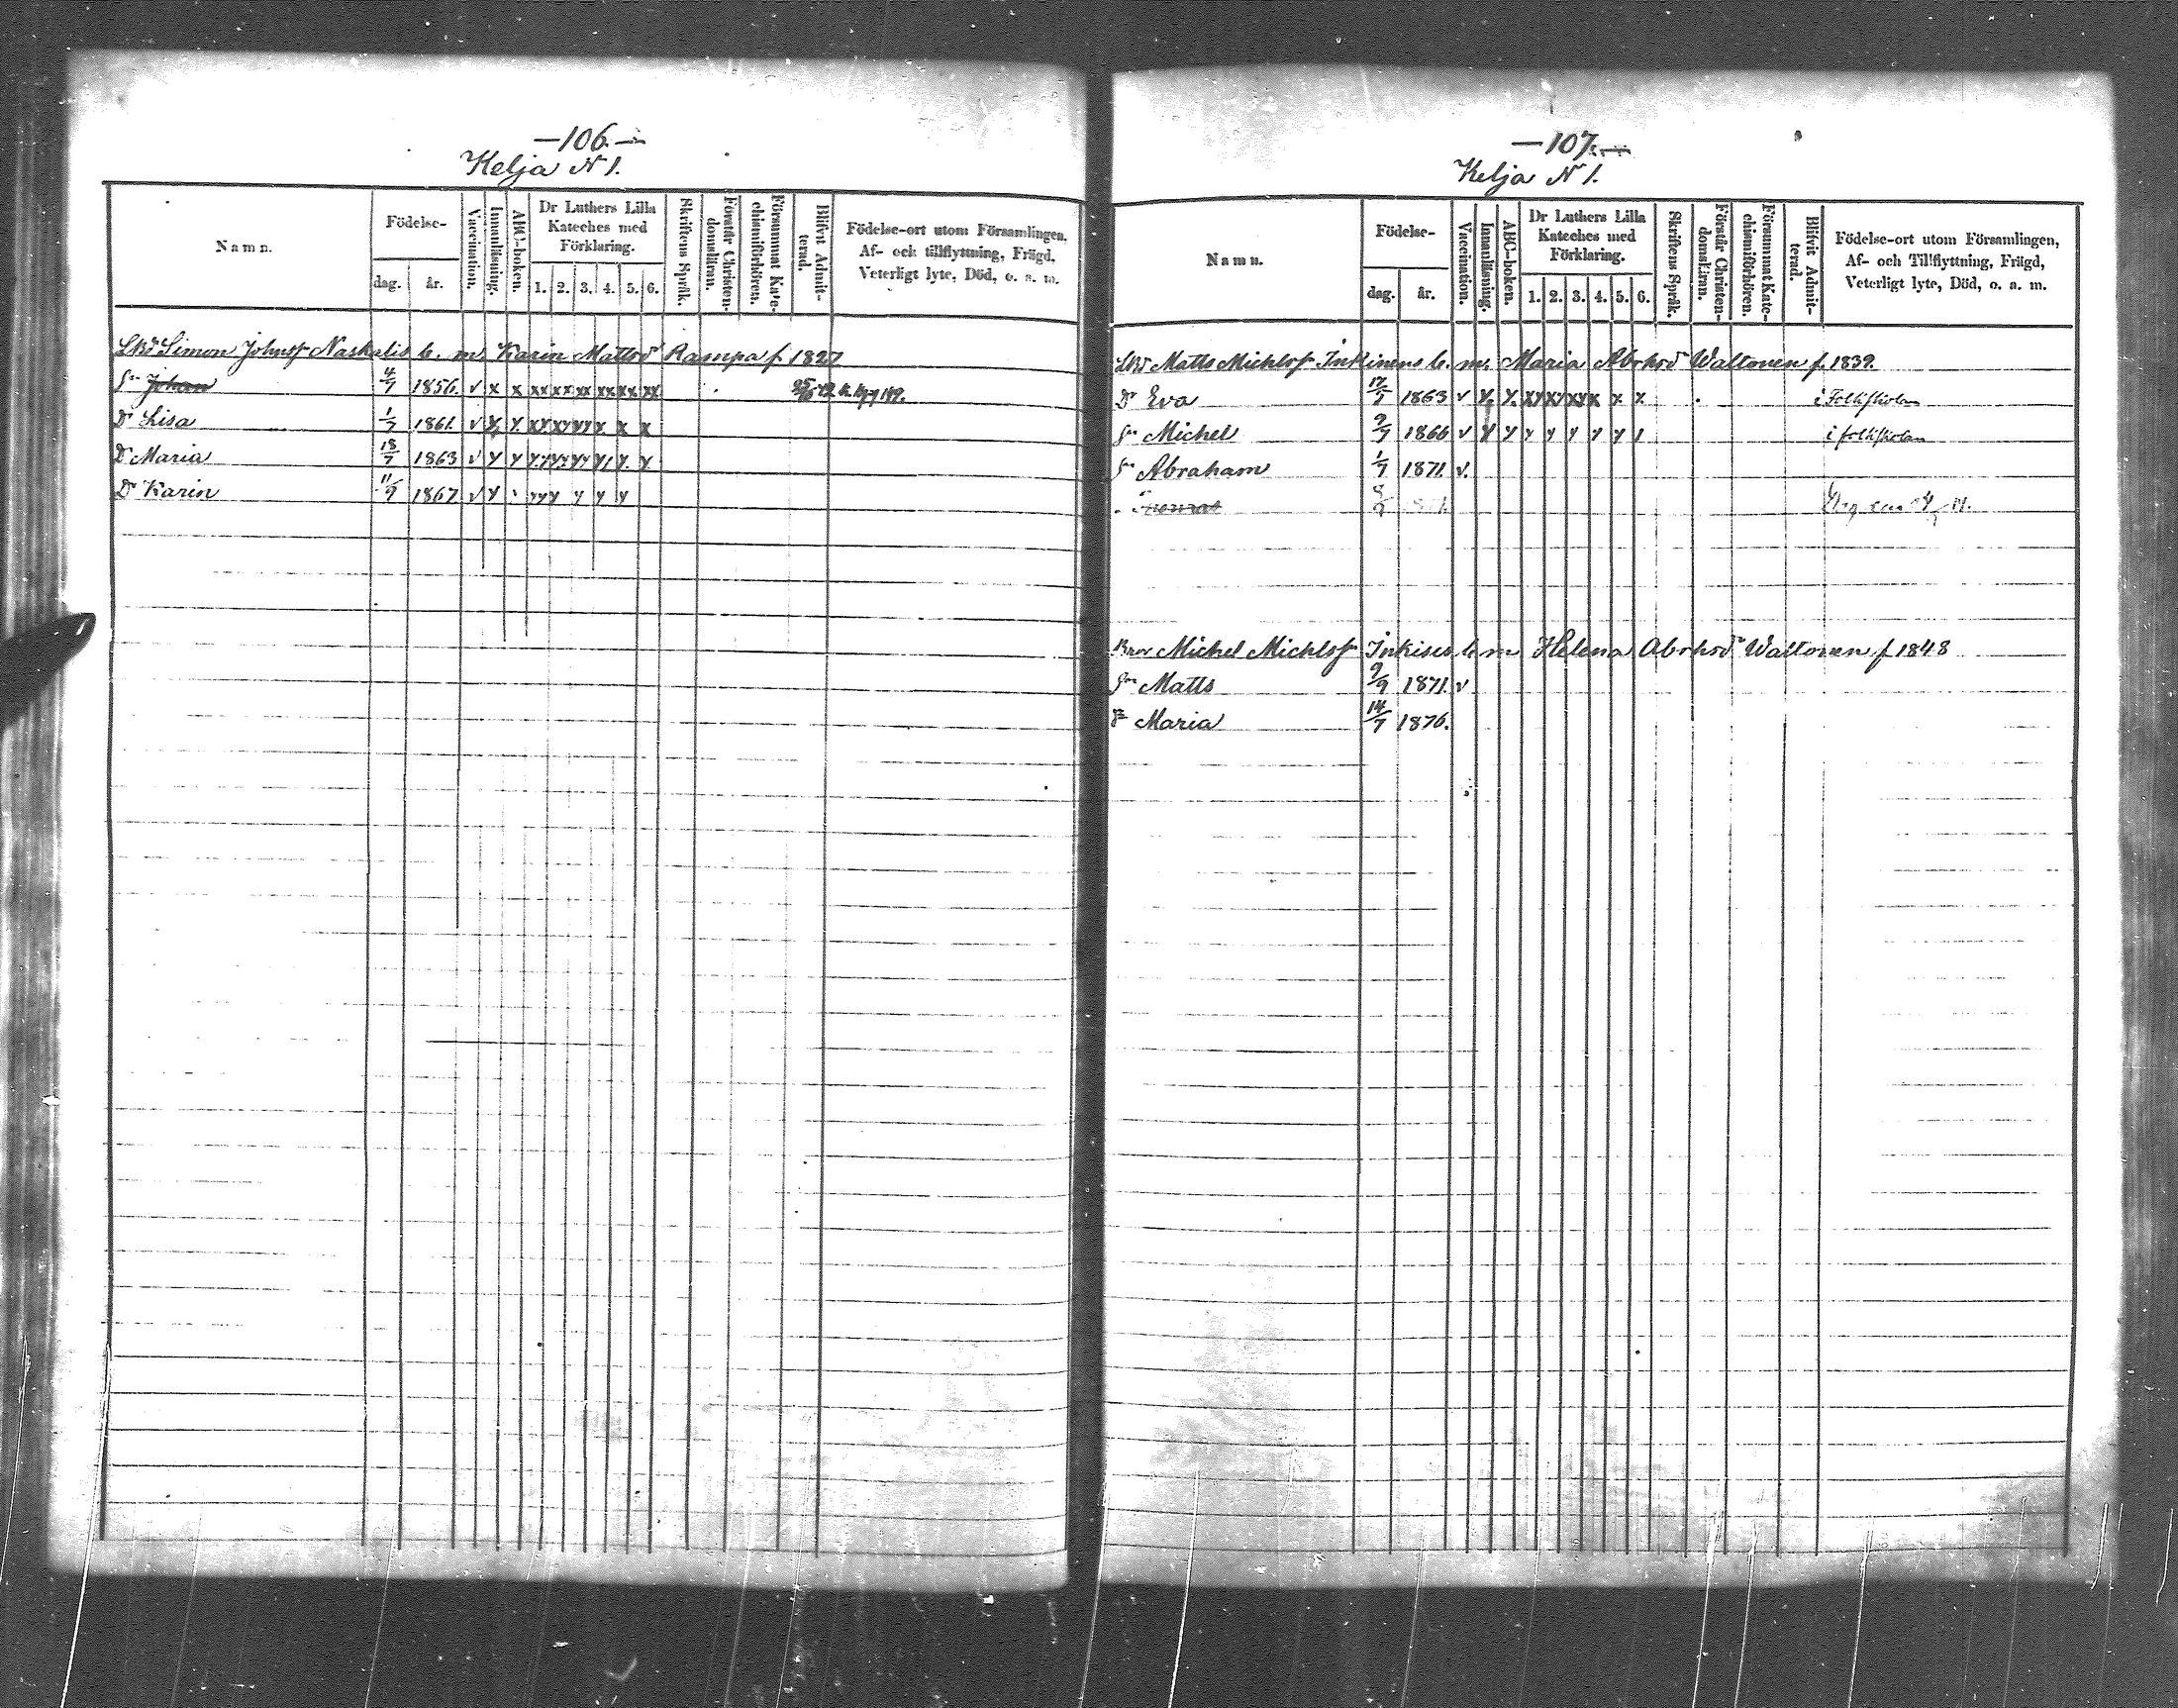 —106.—
Kelja N 1.
Namn.
Födelse-
dag.
år.
Vaccination.
Innanläsning.
ABC-boken.
Dr Luthers Lilla
Kateches med
Förklaring.
1. 2. 3. 4. 5. 6.
Skriftens Språk.
Förstår Christen-
domsläran.
Försummat Kate-
chismiförhören.
Blifvit Admit-
terad.
Födelse-ort utom Församlingen,
Af- och tillflyttning, Frägd,
Veterligt lyte, Död, o. a. m.
Simon Johnsf Naskalis b. m. Karin Mattsd Rampa f 1827
Sn Johan 4/7 1856. v x x xx xx xx xx xx xx
Dr Lisa 1/7 1861. v
Dr Maria 18/7 1863 v
Dr Karin 11/9 1867 v
—107.—
Kelja N 1.
Namn.
Födelse-
dag.
år.
Vaccination.
Innanläsning.
ABC-boken.
Dr Luthers Lilla
Kateches med
Förklaring.
1. 2. 3. 4. 5. 6.
Skriftens Språk.
Förstår Christen-
domsläran.
Försummat Kate-
chismiförhören.
Blifvit Admit-
terad.
Födelse-ort utom Församlingen,
Af- och Tillflyttning, Frägd,
Veterligt lyte, Död, o. a. m.
Matts Michlsf Inkinens b. m. Maria Abrhsd Waltonen f. 1839.
Dr Eva 17/7 1863 v i Folkskolan
Sn Michel 9/7 1866 v i folkskolan
Sn Abraham 1/7 1871. v.
Bror Michel Michlsf Inkises b m Helena Abrhsd Waltonen f 1848
Sn Matts 9/9 1871. v
Maria 14/7 1876.